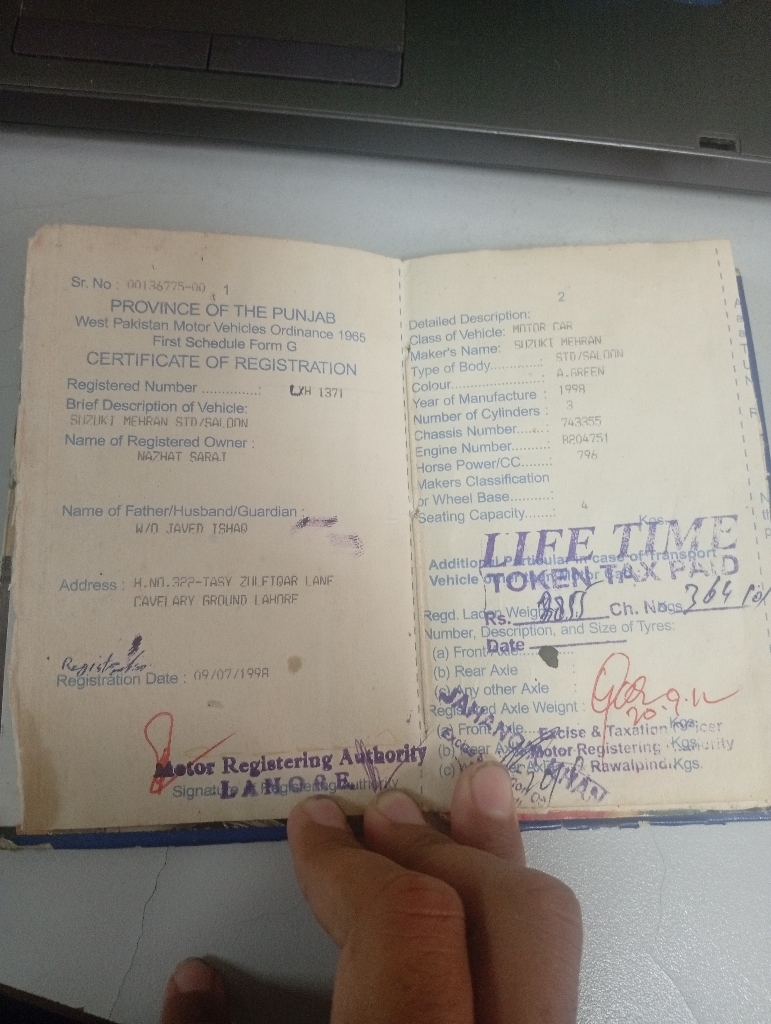 Sr. No : 00136775-00 1
PROVINCE OF THE PUNJAB
West Pakistan Motor Vehicles Ordinance 1965
First Schedule Form G
CERTIFICATE OF REGISTRATION
Registered Number ..............: LXH 1371
Brief Description of Vehicle:
SUZUKI MEHRAN STD/SALOON
Name of Registered Owner :
NAZHAT SARAT
Name of Father/Husband/Guardian :
W/O JAVED ISHAQ
Address : H.NO.322-TASY ZULFIQAR LANE
CAVELARY GROUND LAHORE
Registration Date : 09/07/1998
Motor Registering Authority
LAHORE
Signature Registering Authority
2
Detailed Description:
Class of Vehicle: MOTOR CAR
Maker's Name: SUZUKI MEHRAN
Type of Body............ : STD/SALOON
Colour..................... : A.GREEN
Year of Manufacture : 1998
Number of Cylinders : 3
Chassis Number....... : 743355
Engine Number......... : 8204751
Horse Power/CC....... : 796
Makers Classification
or Wheel Base.......... :
Seating Capacity....... : 4
Kgs.
LIFE TIME
Additional Particular in case of Transport
TOKEN TAX PAID
Vehicle
Regd. Laden Weight
Rs. Ch. No. Kgs.
Number, Description, and Size of Tyres:
Date
(a) Front Axle
(b) Rear Axle
(c) Any other Axle
Registered Axle Weight :
20.9.12
(a) Front Axle... Kgs.
Excise & Taxation Officer
(b) Rear Axle Kgs.
Motor Registering Authority
(c) Kgs.
Rawalpindi